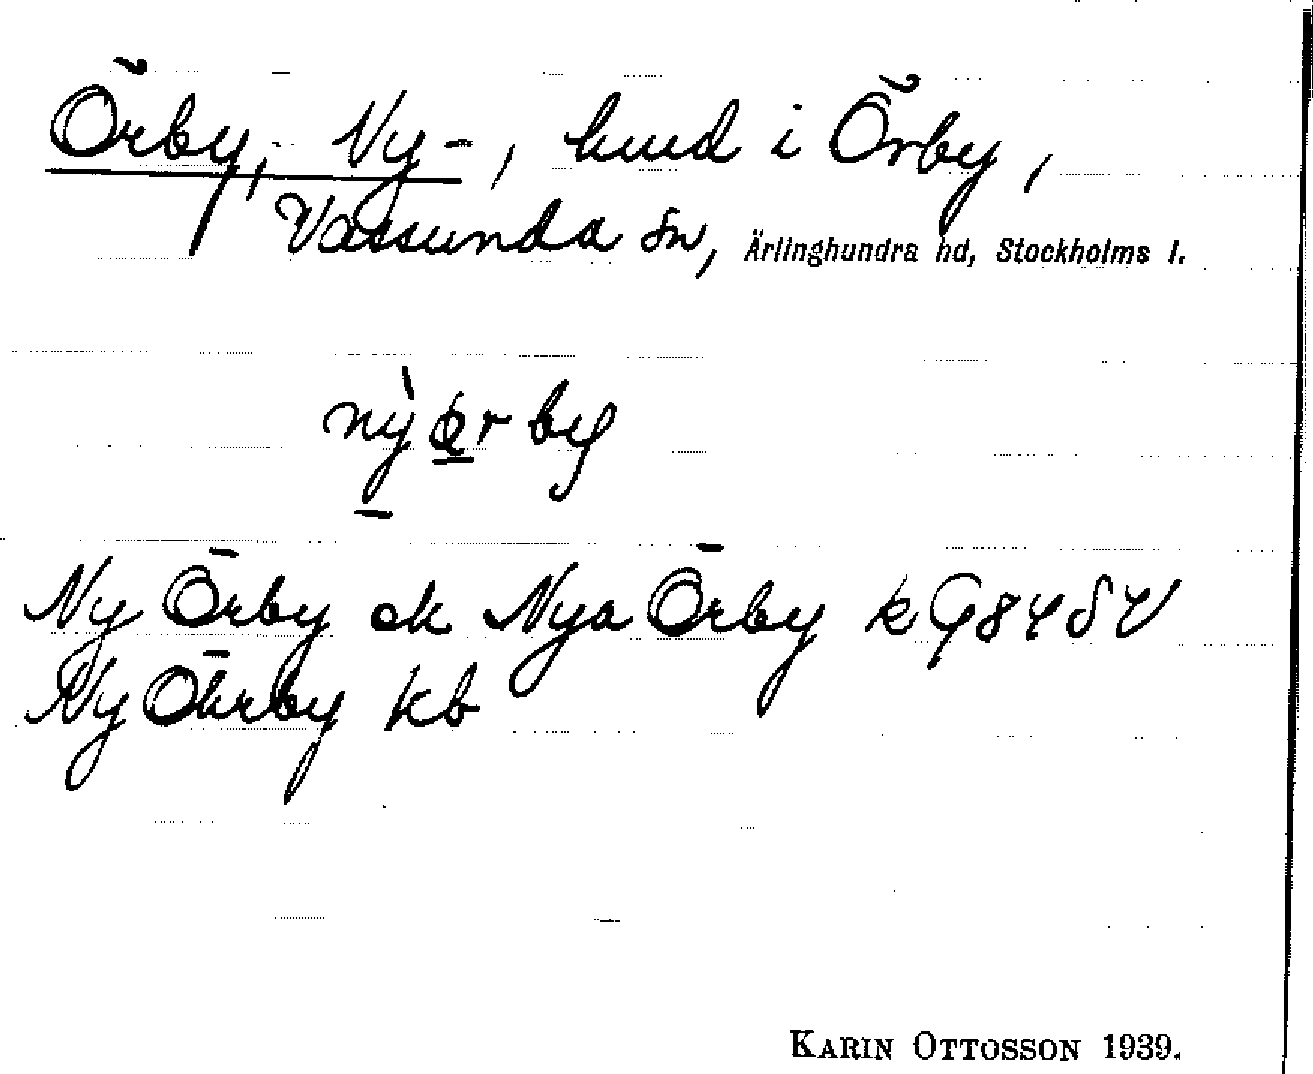 Örby, Ny-, hmd i Örby,
Vassunda sn, Ärlinghundra hd, Stockholms l.
nỳørby
Ny Örby ok Nya Örby k G84 SV
Ny Öhrby kb
KARIN OTTOSSON 1939.